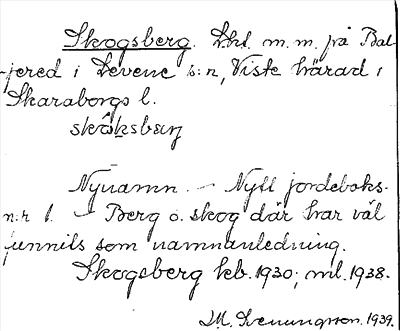 Skogsberg. Lht. m. m. på Bal-
jered i Levene s:n, Viste härad i
Skaraborgs l.
skɷksbærj
Nynamn. - Nytt jordeboks-
n:r 1. - Berg o. skog där har väl
funnits som namnanledning.
Skogsberg kb. 1930; ml. 1938.
M. Svenungsson. 1939.